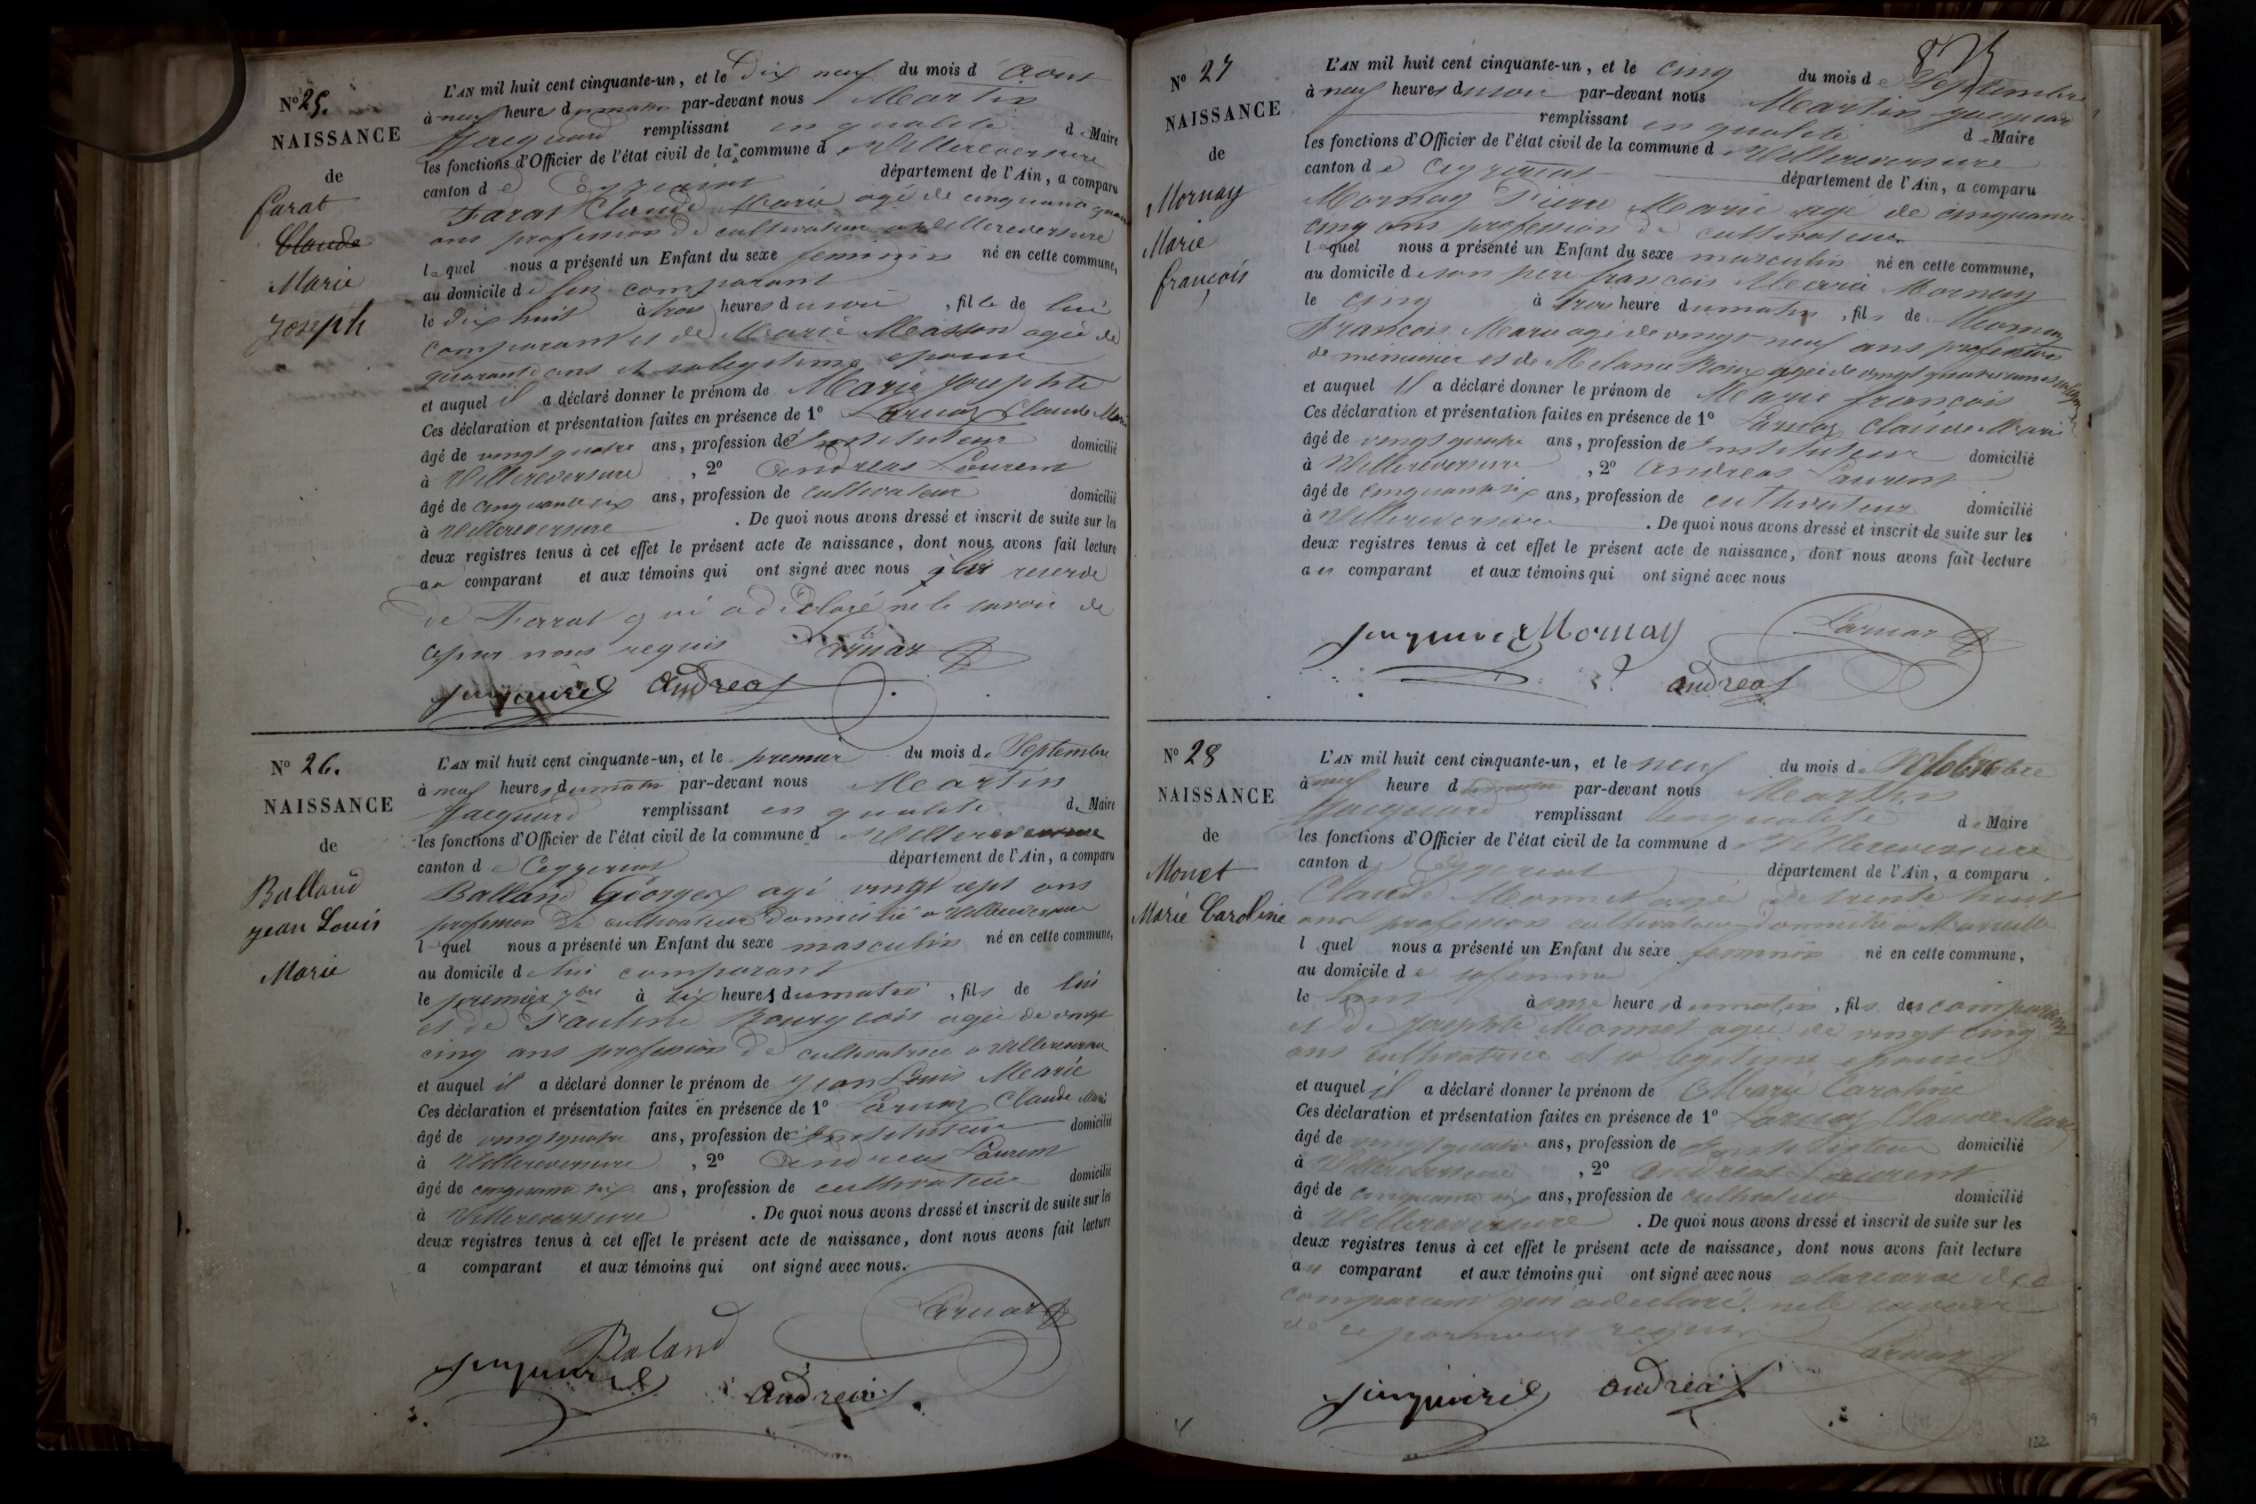 N° 25.
NAISSANCE
de
farat
Claude
Marie
Joseph
L'AN mil huit cent cinquante-un, et le Dix neuf du mois d Aout
à neuf heures dumatin par-devant nous Martin
Jacquard remplissant en qualité de Maire
les fonctions d'Officier de l'état civil de la commune d Villereversure
canton de Ceyzeriat département de l'Ain, a comparu
Farat Claude Marie agé de cinquante quatre
ans profession de cultivateur a Villereversure
lequel nous a présenté un Enfant du sexe feminin né en cette commune,
au domicile de lui comparant
le dix huit à trois heures du soir, fille de lui
comparant et de Marie Masson agée de
quarante ans et sa legitime epouse
et auquel il a déclaré donner le prénom de Marie Josephte
Ces déclaration et présentation faites en présence de 1° Larnaz Claude Marie
âgé de vingt quatre ans, profession de Instituteur domicilié
à Villereversure, 2° Andreas Laurent
âgé de cinquante six ans, profession de cultivateur domicilié
à Villereversure. De quoi nous avons dressé et inscrit de suite sur les
deux registres tenus à cet effet le présent acte de naissance, dont nous avons fait lecture
au comparant et aux témoins qui ont signé avec nous reserve
de Farat qui a déclaré ne le savoir de
ce par nous requis Larnaz
Jacquard Andreas
N° 26.
NAISSANCE
de
Balland
jean Louis
Marie
L'AN mil huit cent cinquante-un, et le premier du mois de Septembre
à neuf heures dumatin par-devant nous Martin
Jacquard remplissant en qualité de Maire
les fonctions d'Officier de l'état civil de la commune d Villereversure
canton de Ceyzeriat département de l'Ain, a comparu
Balland Georges agé vingt sept ans
profession de cultivateur domicilié a Villereversure
lequel nous a présenté un Enfant du sexe masculin né en cette commune,
au domicile de lui comparant
le premier 7bre à six heures dumatin, fils de lui
et de Pauline Bourgeois agée de vingt
cinq ans profession de cultivatrice a Villereversure
et auquel il a déclaré donner le prénom de Jean Louis Marie
Ces déclaration et présentation faites en présence de 1° Larnaz Claude Marie
âgé de vingt quatre ans, profession de Instituteur domicilié
à Villereversure, 2° Andreas Laurent
âgé de cinquante six ans, profession de cultivateur domicilié
à Villereversure. De quoi nous avons dressé et inscrit de suite sur les
deux registres tenus à cet effet le présent acte de naissance, dont nous avons fait lecture
a comparant et aux témoins qui ont signé avec nous.
Larnaz
Baland
Jacquard Andreas
N° 27
NAISSANCE
de
Mornay
Marie
françois
L'AN mil huit cent cinquante-un, et le cinq du mois de Septembre
à neuf heures du soir par-devant nous Martin Jacquard
remplissant en qualité de Maire
les fonctions d'Officier de l'état civil de la commune d Villereversure
canton de Ceyzeriat département de l'Ain, a comparu
Mornay Pierre Marie agé de cinquante
cinq ans profession de cultivateur
lequel nous a présenté un Enfant du sexe masculin né en cette commune,
au domicile de son pere françois Marie Mornay
le cinq à trois heure dumatin, fils de Mornay
François Marie agé de vingt neuf ans profession
de menuisier et de Melanie Roux agée de vingt quatre ans
et auquel il a déclaré donner le prénom de Marie françois
Ces déclaration et présentation faites en présence de 1° Larnaz Claude Marie
âgé de vingt quatre ans, profession de Instituteur domicilié
à Villereversure, 2° Andreas Laurent
âgé de cinquante six ans, profession de cultivateur domicilié
à Villereversure. De quoi nous avons dressé et inscrit de suite sur les
deux registres tenus à cet effet le présent acte de naissance, dont nous avons fait lecture
au comparant et aux témoins qui ont signé avec nous
Jacquard Mornay Larnaz
Andreas
N° 28
NAISSANCE
de
Monet
Marie Caroline
L'AN mil huit cent cinquante-un, et le neuf du mois de
à neuf heure dumatin par-devant nous Martin
Jacquard remplissant en qualité de Maire
les fonctions d'Officier de l'état civil de la commune d Villereversure
canton d Ceyzeriat département de l'Ain, a comparu
Claude Monnet agé de trente huit
ans profession cultivateur domicilié a
l quel nous a présenté un Enfant du sexe feminin né en cette commune,
au domicile de sa femme
le à onze heure dumatin, fils de comparant
et de Josephte Monnet agée de vingt cinq
ans cultivatrice et sa legitime epouse
et auquel il a déclaré donner le prénom de Marie Caroline
Ces déclaration et présentation faites en présence de 1° Larnaz Claude Marie
âgé de vingt quatre ans, profession de Instituteur domicilié
à Villereversure, 2° Andreas Laurent
âgé de cinquante six ans, profession de cultivateur domicilié
à Villereversure. De quoi nous avons dressé et inscrit de suite sur les
deux registres tenus à cet effet le présent acte de naissance, dont nous avons fait lecture
au comparant et aux témoins qui ont signé avec nous a la reserve de
comparant qui a declaré ne le savoir
de ce par nous requis
Larnaz
Jacquard Andreas
122